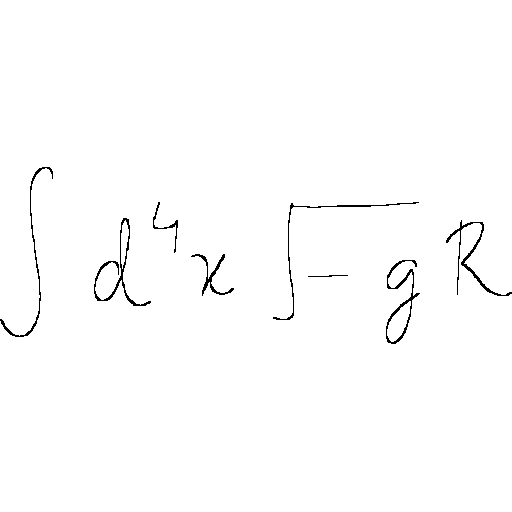 ∫ d⁴x √-g R